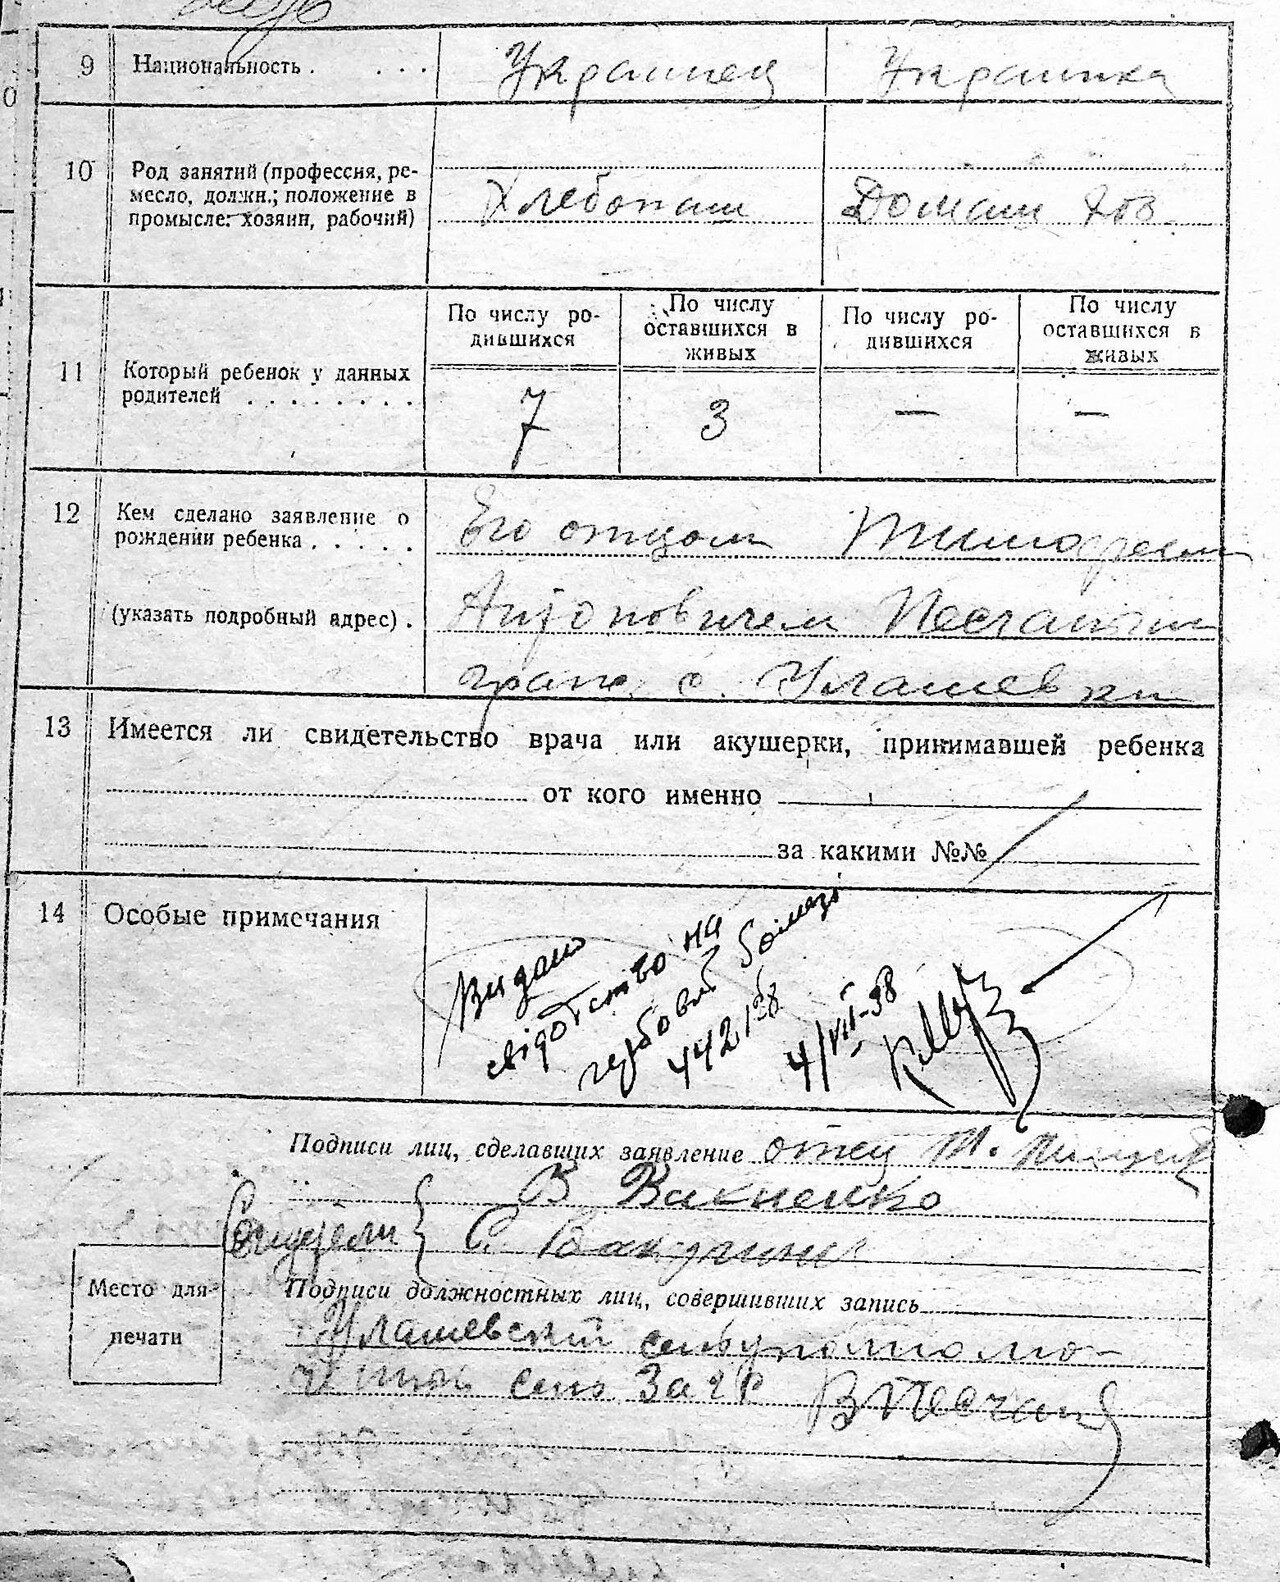 9 Национальность . . . . Украинец Украинка
10 Род занятий (профессия, ре-
месло, должн.; положение в
промысле: хозяин, рабочий)
Хлебопаш Домаш хоз.
11 Который ребенок у данных
родителей . . . . . . . .
По числу ро-
дившихся
По числу
оставшихся в
живых
По числу ро-
дившихся
По числу
оставшихся в
живых
7 3 — —
12 Кем сделано заявление о
рождении ребенка . . . . .
(указать подробный адрес) .
Его отцом Тимофеем
Антоновичем Песчаным
граж. с. Улашевки
13 Имеется ли свидетельство врача или акушерки, принимавшей ребенка
от кого именно
за какими №№
14 Особые примечания
Видано
свідотство на
гербовій бомазі
442128
4/VII-38
Подписи лиц, сделавших заявление отец Т.
В Вакненко
Свидетели С.
Место для
печати
Подписи должностных лиц, совершивших запись
Улашевский сельуполномо-
ченный ЗАГС В Песчаный